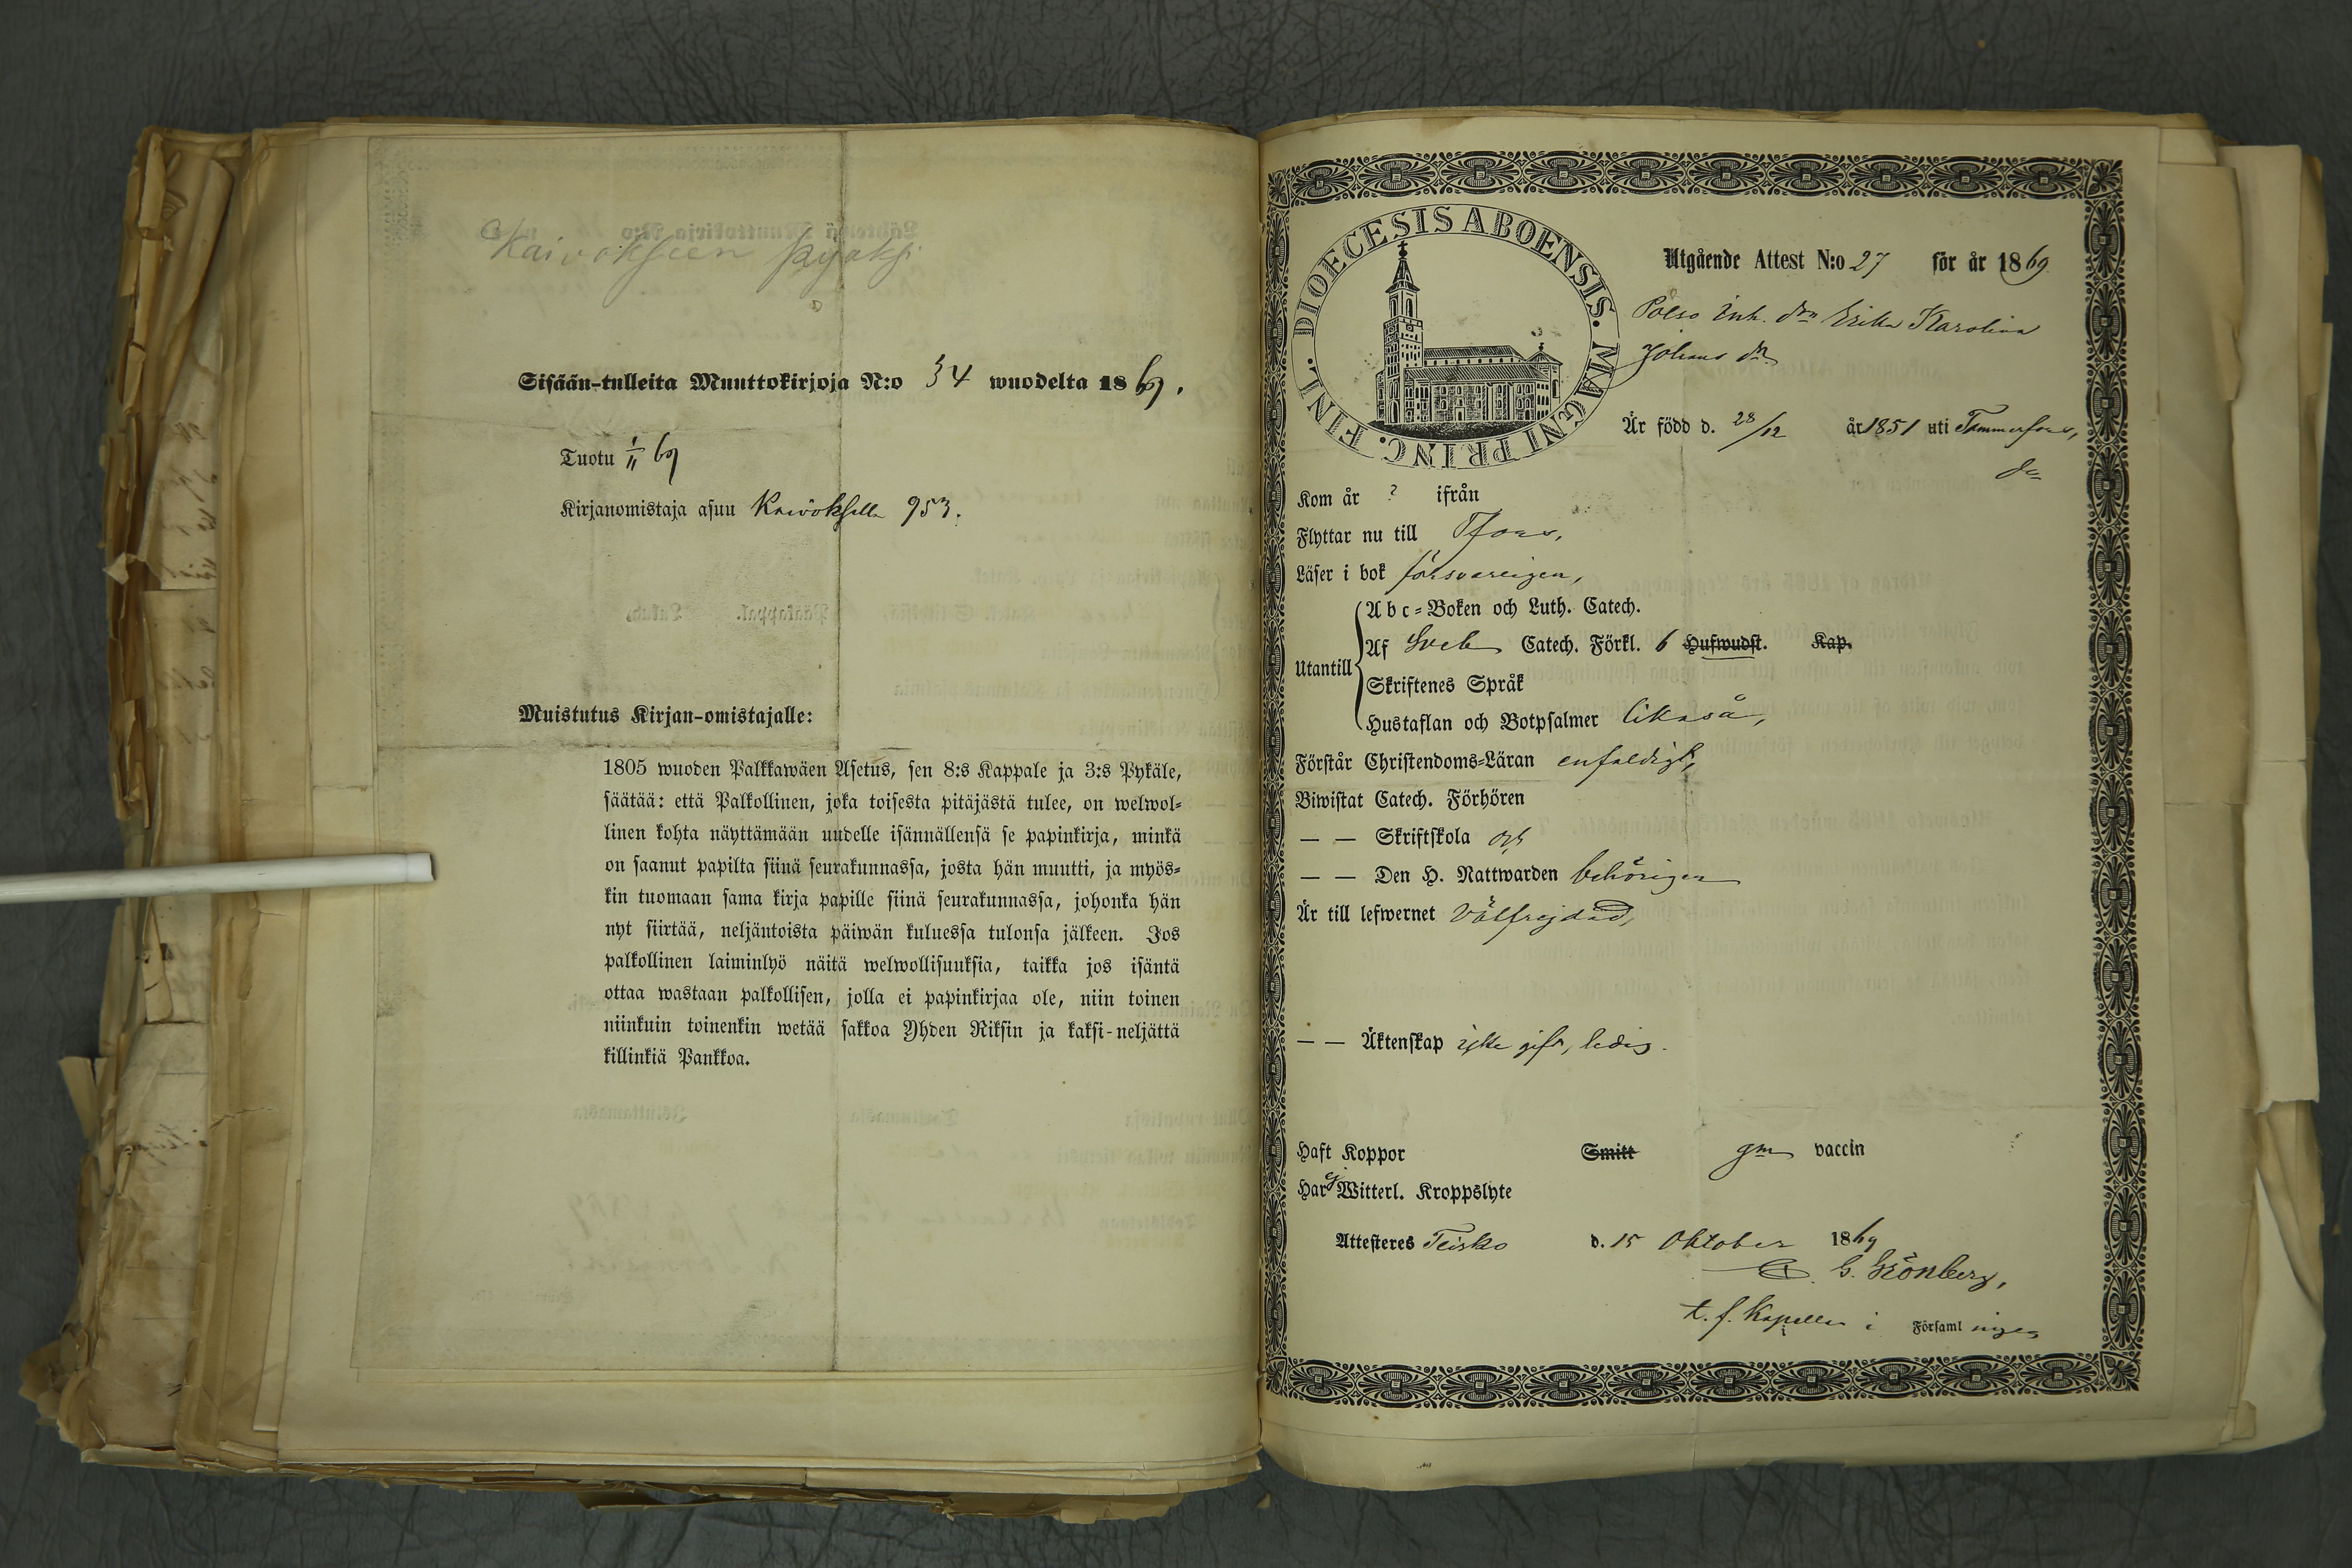 Kaivokseen
Sisään-tulleita Muuttokirjoja N:o 34 wuodelta 1869.
Tuotu 1/11 69
Kirjanomistaja asuu Kaivoksella 953.
Muistutus Kirjan-omistajalle:
1805 wuoden Palkkawäen Asetus, sen 8:s Kappale ja 3:s Pykäle,
säätää: että Palkollinen, joka toisesta pitäjästä tulee, on welwol-
linen kohta näyttämään uudelle isännällensä se papinkirja, minkä
on saanut papilta siinä seurakunnassa, josta hän muutti, ja myös-
kin tuomaan sama kirja papille siinä seurakunnassa, johonka hän
nyt siirtää, neljäntoista päiwän kuluessa tulonsa jälkeen. Jos
palkollinen laiminlyö näitä welwollisuuksia, taikka jos isäntä
ottaa wastaan palkollisen, jolla ei papinkirjaa ole, niin toinen
niinkuin toinenkin wetää sakkoa Yhden Riksin ja kaksi-neljättä
killinkiä Pankkoa.
FINL. DIOECESIS ABOENSIS. MAGNI PRINC.
Utgående Attest N:o 27 för år 1869
Inh. drn Erika Karolina
Johans dr
Är född d. 28/12 år 1851 uti Tammerfors,
Kom år ? ifrån
Flyttar nu till Tfors,
Läser i bok försvarligen,
Utantill
Abc-Boken och Luth. Catech.
Af Sveb Catech. Förkl. 6 Hufwudst. Kap.
Skriftenes Språk
Hustaflan och Botpsalmer likaså,
Förstår Christendoms-Läran enfaldigt,
Biwistat Catech. Förhören
— — Skriftskola och
— — Den H. Nattwarden behörigen
Är till lefwernet välfrejdad,
— — Äktenskap icke gift, ledig.
Haft Koppor Smitt gm vaccin
Har ej Witterl. Kroppslyte
Attesteres Teisko d. 15 Oktober 1869
G. Grönberg,
t. f. Kapellan i Församlingen